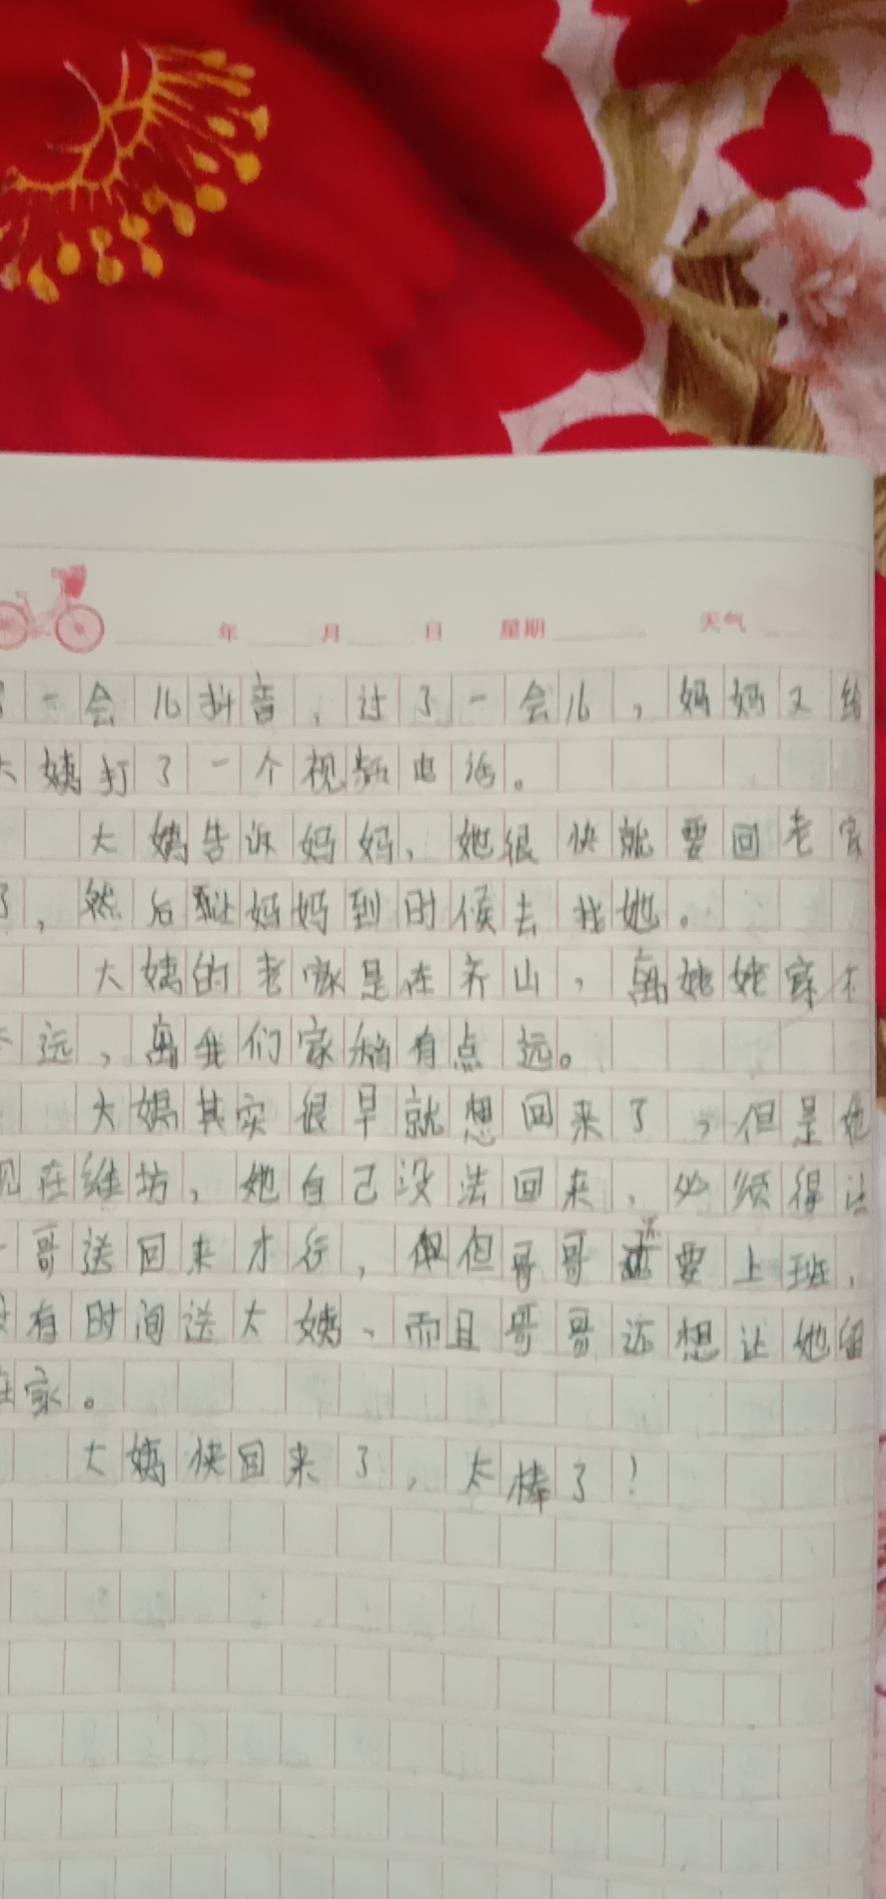 年 月 日 星期 天气
了一会儿抖音，过了一会儿，妈妈又给
大姨打了一个视频电话。
大姨告诉妈妈，她很快就要回老家
了，然后让妈妈到时候去找她。
大姨的老家是在乔山，离姥姥家不
太远，离我们家稍有点远。
大姨其实很早就想回来了，但是她
现在维坊，她自己没法回来，必须得让
哥送回来才行，但哥哥还要上班，
没有时间送大姨、而且哥哥还想让她留
在家。
大姨快回来了，太棒了！